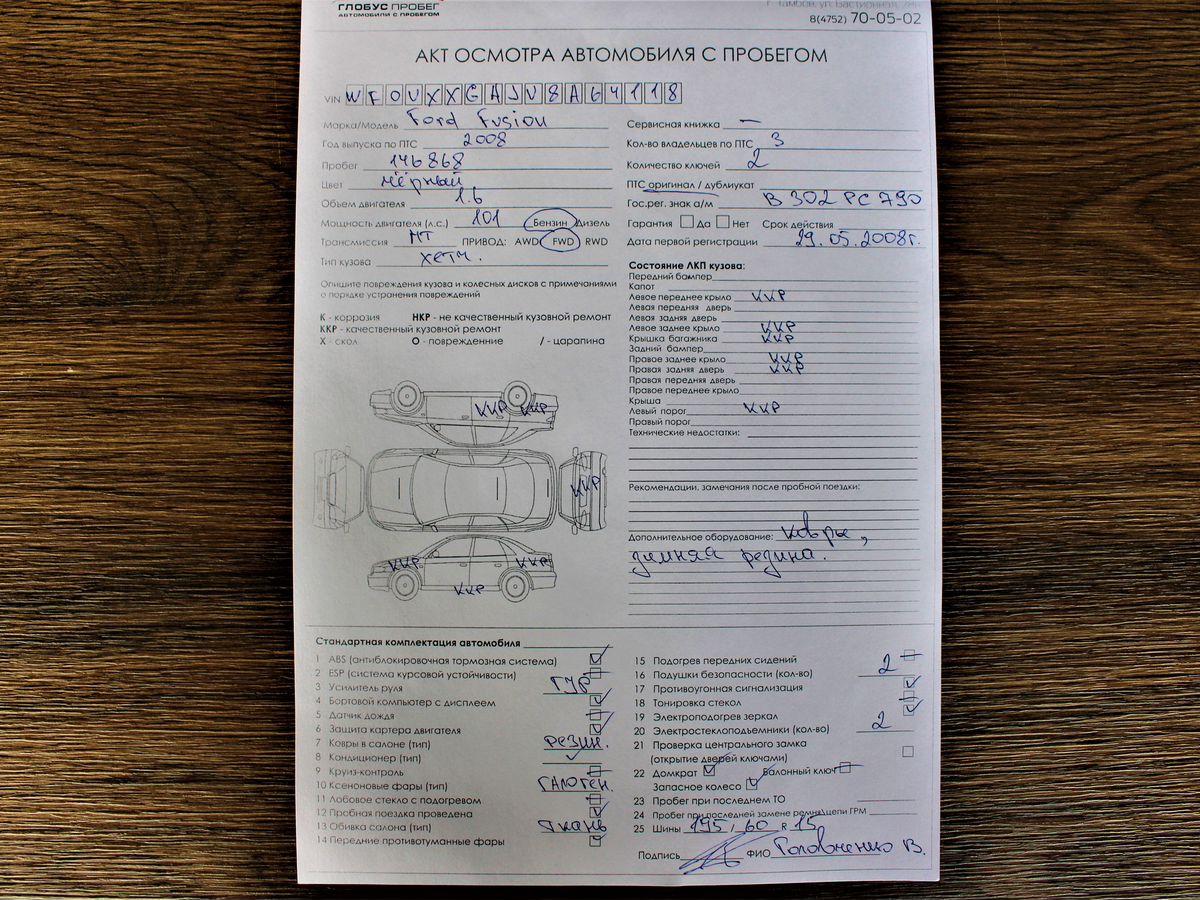 ГЛОБУС ПРОБЕГ
АВТОМОБИЛИ С ПРОБЕГОМ
г. Тамбов, ул. Бастионная,
8(4752) 70-05-02
АКТ ОСМОТРА АВТОМОБИЛЯ С ПРОБЕГОМ
VIN WF0UXXGAJU8A64118
Марка/Модель Ford Fusion
Год выпуска по ПТС 2008
Пробег 146868
Цвет чёрный
Объем двигателя 1.6
Мощность двигателя (л.с.) 101 Бензин Дизель
Трансмиссия МТ ПРИВОД: AWD FWD RWD
Тип кузова хетч.
Опишите повреждения кузова и колесных дисков с примечаниями
о порядке устранения повреждений
К - коррозия НКР - не качественный кузовной ремонт
ККР - качественный кузовной ремонт
Х - скол О - повреждение / - царапина
ККР ККР
ККР
ККР ККР
ККР
Сервисная книжка —
Кол-во владельцев по ПТС 3
Количество ключей 2
ПТС оригинал / дубликат
Гос.рег. знак а/м В 302 РС 790
Гарантия Да Нет Срок действия
Дата первой регистрации 29.05.2008г.
Состояние ЛКП кузова:
Передний бампер
Капот
Левое переднее крыло ККР
Левая передняя дверь
Левая задняя дверь
Левое заднее крыло ККР
Крышка багажника ККР
Задний бампер
Правое заднее крыло ККР
Правая задняя дверь ККР
Правая передняя дверь
Правое переднее крыло
Крыша
Левый порог ККР
Правый порог
Технические недостатки:
Рекомендации, замечания после пробной поездки:
Дополнительное оборудование: ковры,
зимняя резина.
Стандартная комплектация автомобиля
1 ABS (антиблокировочная тормозная система)
2 ESP (система курсовой устойчивости)
3 Усилитель руля ГУР
4 Бортовой компьютер с дисплеем
5 Датчик дождя
6 Защита картера двигателя
7 Ковры в салоне (тип) резин.
8 Кондиционер (тип)
9 Круиз-контроль
10 Ксеноновые фары (тип) галоген.
11 Лобовое стекло с подогревом
12 Пробная поездка проведена
13 Обивка салона (тип) ткань
14 Передние противотуманные фары
15 Подогрев передних сидений
16 Подушки безопасности (кол-во) 2
17 Противоугонная сигнализация
18 Тонировка стекол
19 Электроподогрев зеркал
20 Электростеклоподъемники (кол-во) 2
21 Проверка центрального замка
(открытие дверей ключами)
22 Домкрат Балонный ключ
Запасное колесо
23 Пробег при последнем ТО
24 Пробег при последней замене ремня/цепи ГРМ
25 Шины 195 / 60 R 15
Подпись ФИО Головченко В.